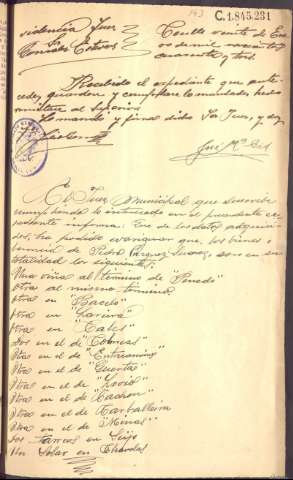 C. 1.845.231
Providencia Juez
Sr.
Gonzalez Esteves
Teulle veinte de Ene
ro de mil novecientos
cuarenta y tres.
Recibido el expediente que ante
cede, guardese y cumplase lo mandado, hecho
remitase al Superior
Lo mando y firma dicho Sr. Juez, y doy
fé
José Mª
El Juez Municipal que suscribe
cumpliendo lo interesado en el precedente ex
pediente informa: Que de los datos adquiri
dos, ha podido averiguar que, los bienes
de Pedro Vazquez Suarez, son en su
totalidad los siguientes:
Una viña al término de "Penedo"
Otra al mismo término
Otra en "Bacelo"
Otra en "Lariva"
Otra en "Cales"
Dos en el de
Otra en el de "Entrecamiños"
Otra en el de "Cuenta"
Otra en el de "Souto"
Otra en el de "Cachon"
Otra en el de "Carballeira"
Otra en el de "Minas"
Dos tarreos en Seijo
Un Solar en Chavolas